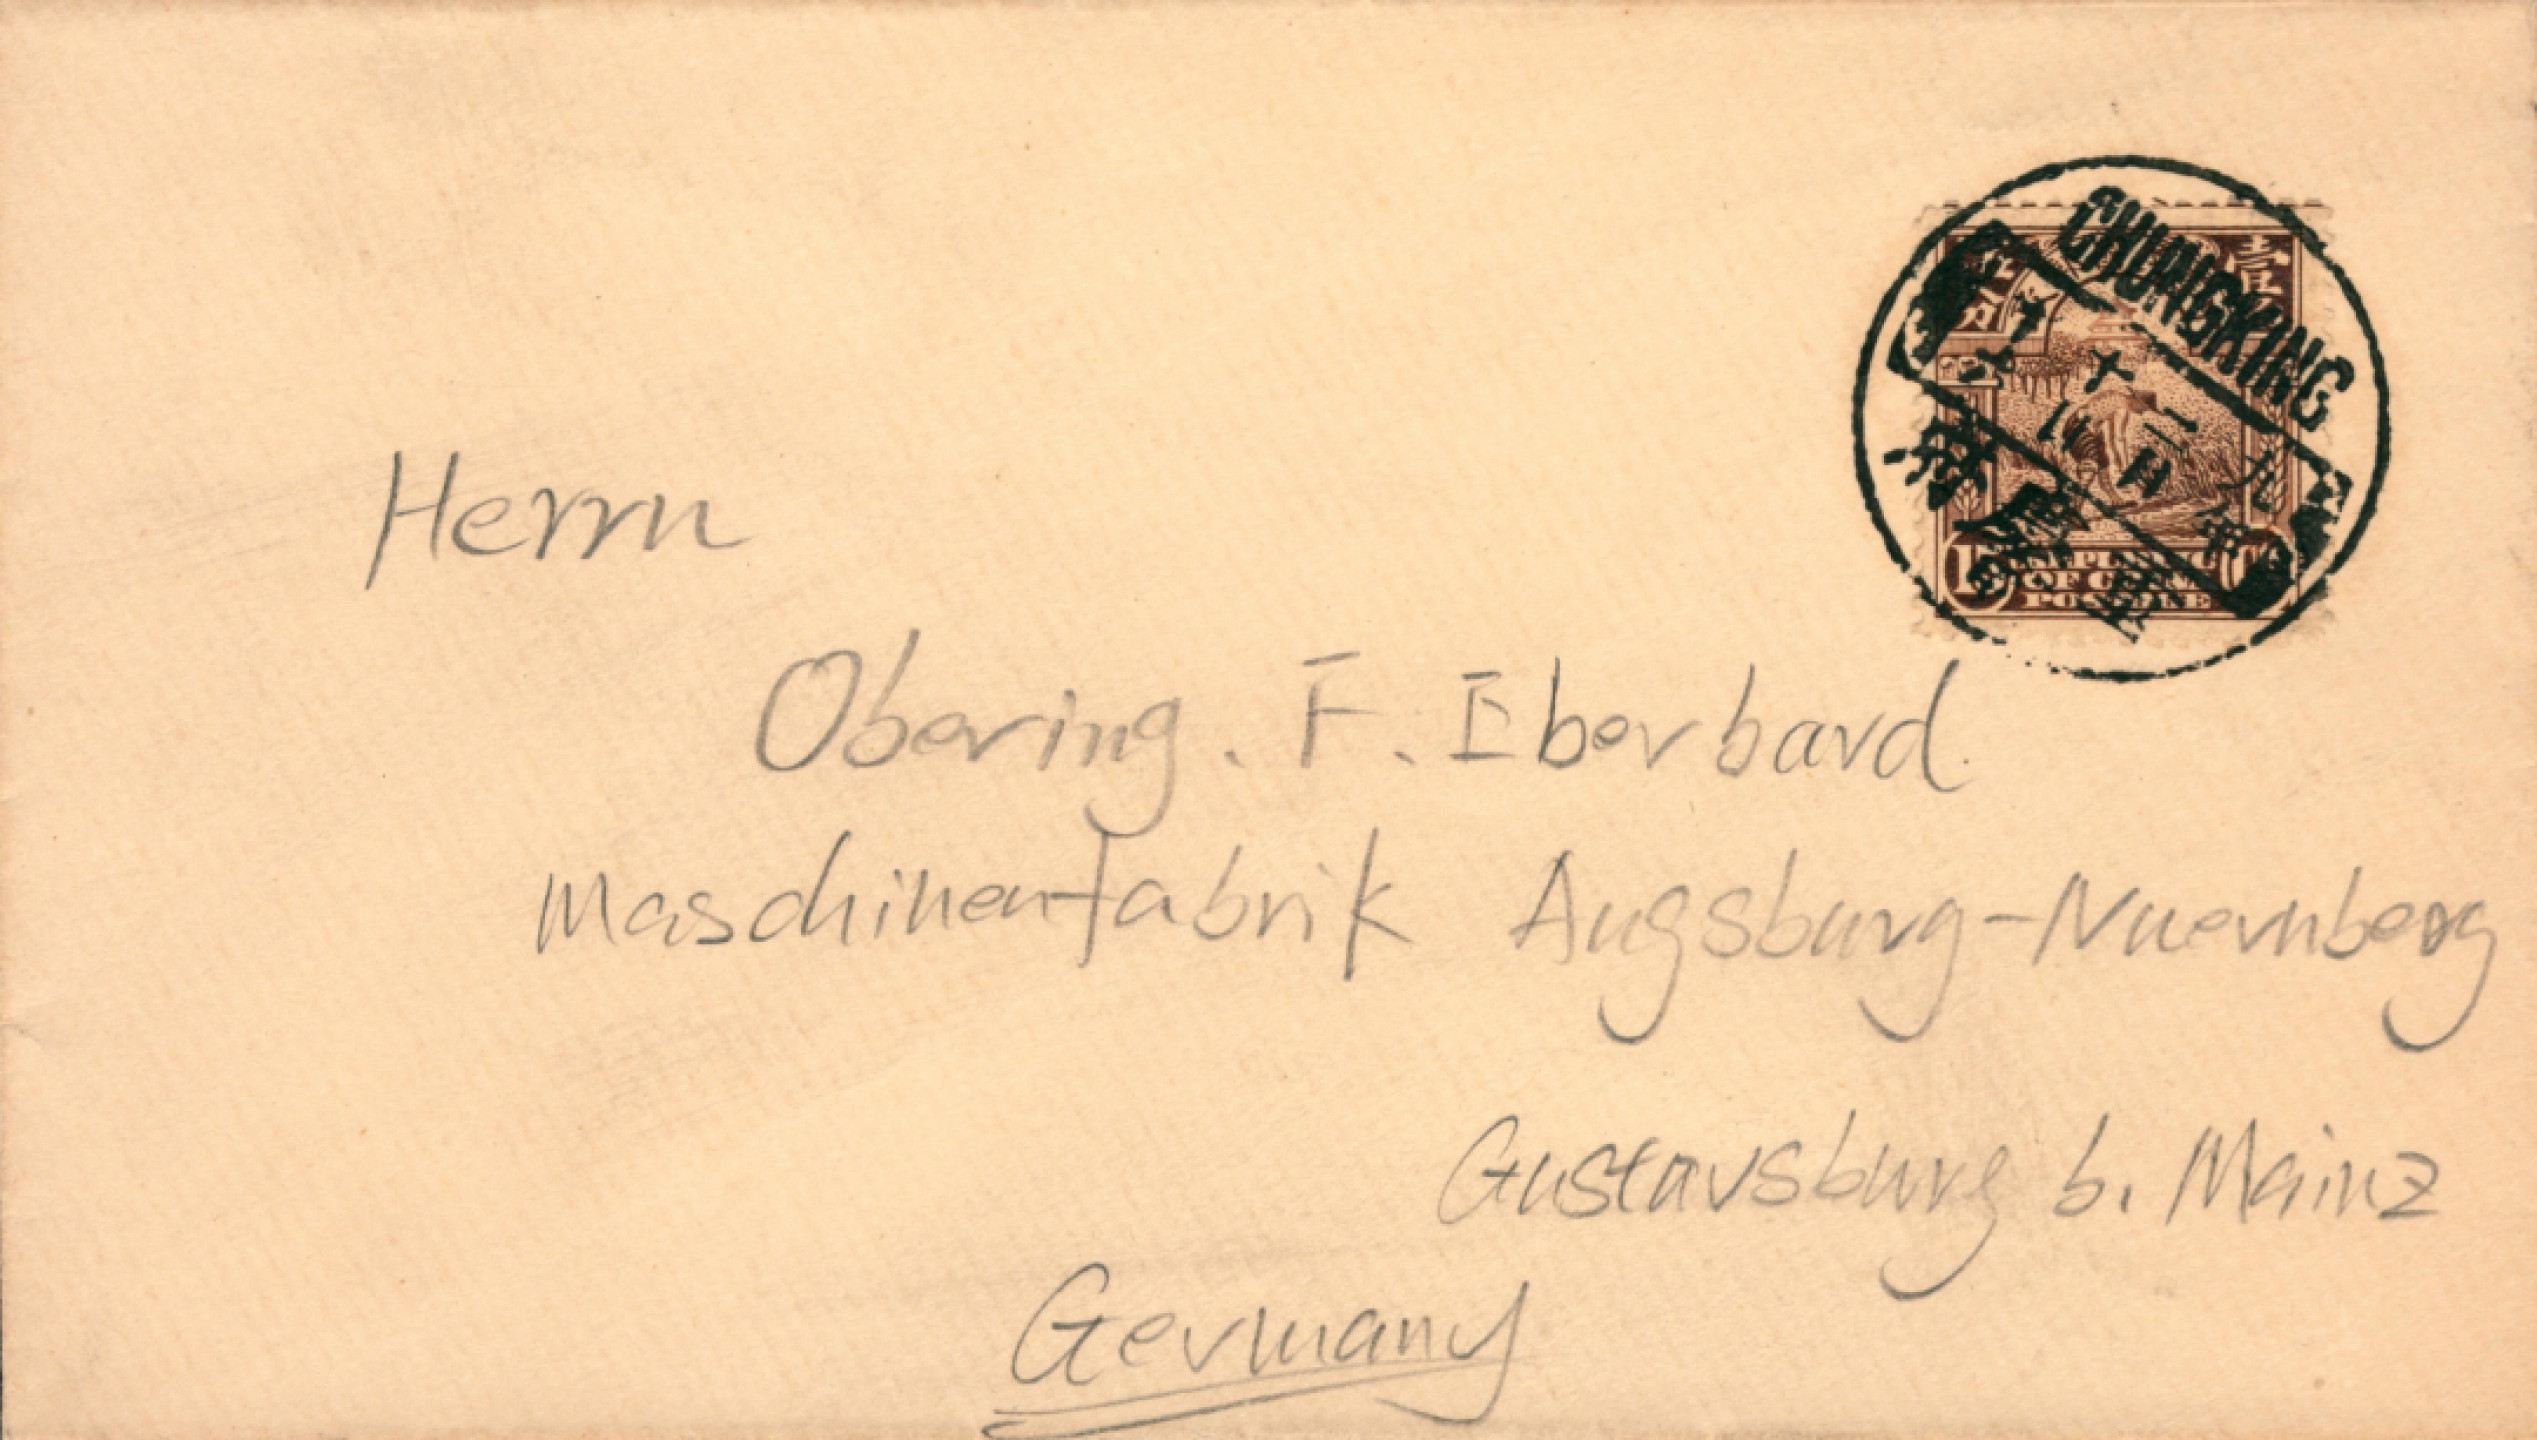 CHUNGKING
壹
九年
二月
十
重慶
OF CHINA
POSTAGE
Herrn
Obering. F. Eberhard
Maschinenfabrik Augsburg-Nuernberg
Gustavsburg b. Mainz
Germany